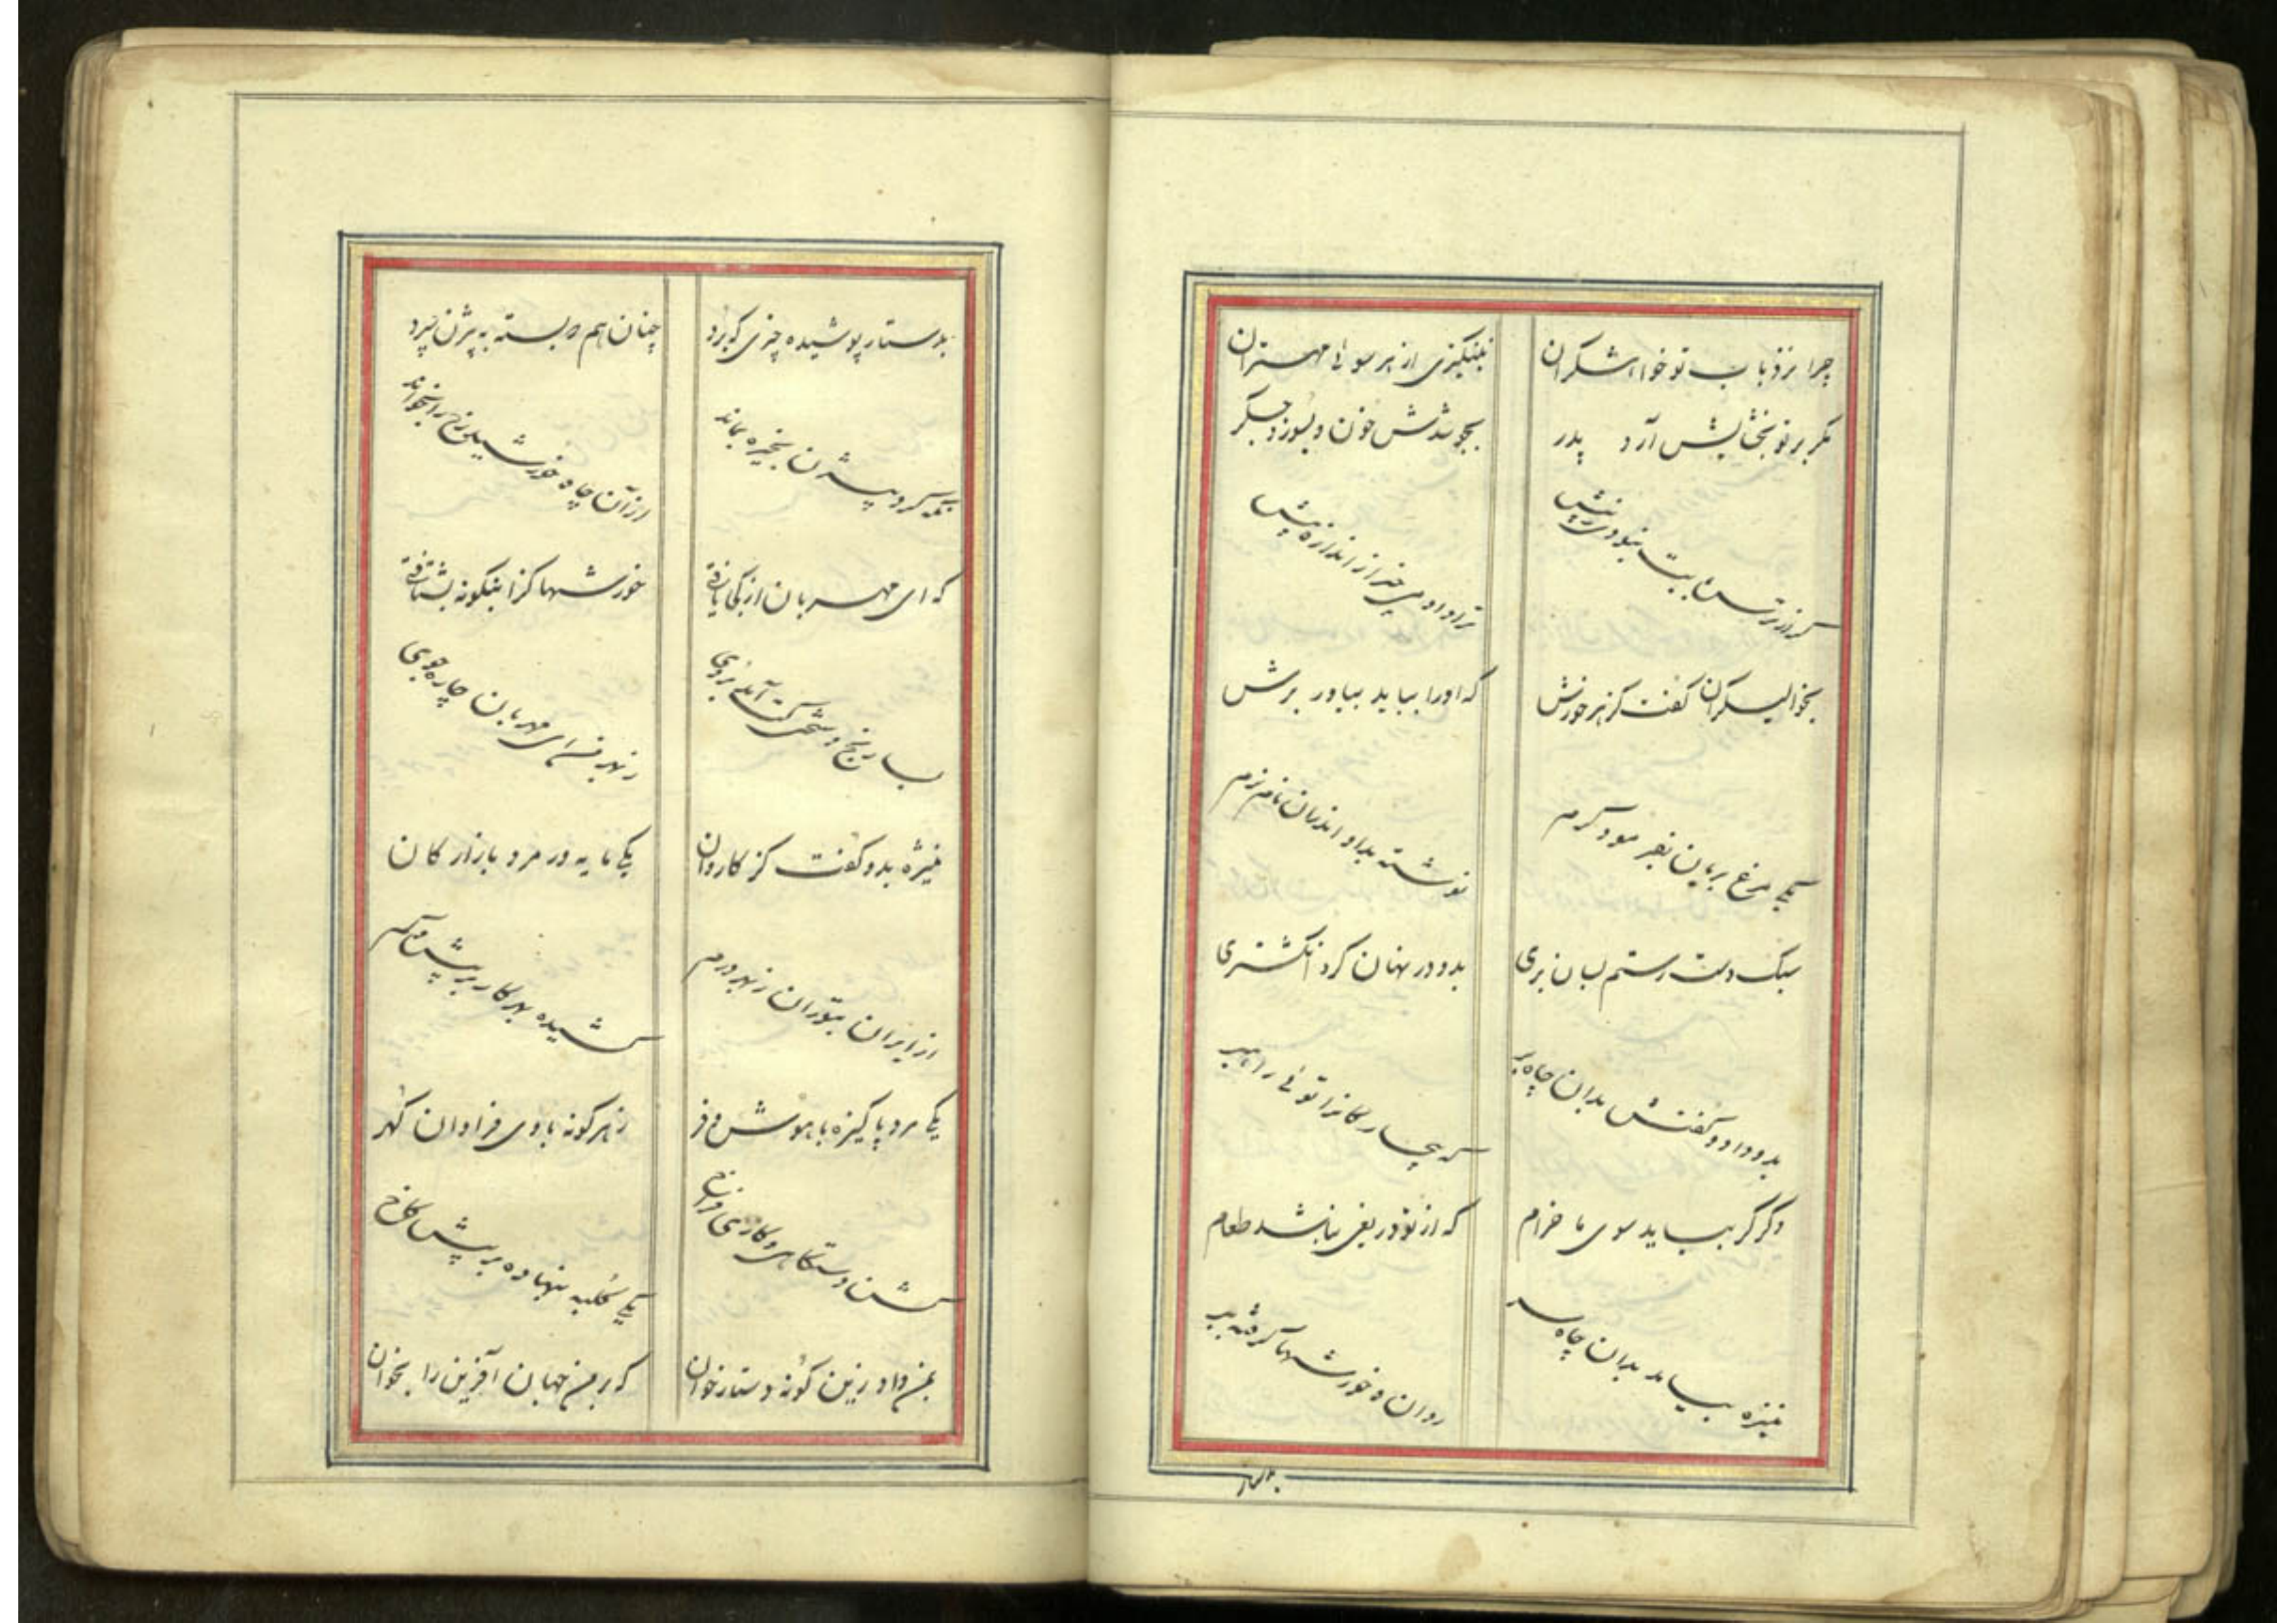 چرا نزد باب تو خواهشگران نینگیزی از هر سوئی مهتران
مگر بر تو بخشایش آرد پدر بجوشدش خون و بسوزد جگر
گر آزار بابت نبودی ز پیش ترا دادمی چیز از اندازه بیش
بخوالیگران گفت کز هر خورش که او را بباید بیاور برش
یکی مرغ بریان بفرمود گرم نوشته بدو اندران نان نرم
سبک دست رستم بسان پری بدو در نهان کرد انگشتری
بدو داد و گفتش بدان چاه بر که بیچارگانرا توئی راهبر
وگر گر بیاید سوی ما خرام که از تو دریغی نباشد طعام
منیژه بیامد بدان چاه سر دوان و خورشها گرفته ببر
بدستار
بدستار پوشیده چیزی که برد چنان هم که بسته به بیژن سپرد
نگه کرد بیژن بخیره بماند از آن چاه خورشید رخ را بخواند
که ای مهربان از کجا یافتی خورشها کزاینگونه بشتافتی
بسا رنج و سختی کت آمد بروی ز بهر منی ای مهربان چاره جوی
منیژه بدو گفت کز کاروان یکی مایه ور مرد بازارکان
از ایران بتوران ز بهر درم کشیده بهر کار بر بیش و کم
یکی مرد پاکیزه با هوش و فر ز هر گونه با وی فراوان گهر
گشن دستگاهی و کاری فراخ یکی کلبه بنهاده بر پیش کاخ
بمن داد زین گونه دستارخوان که بر من جهان آفرین را بخوان